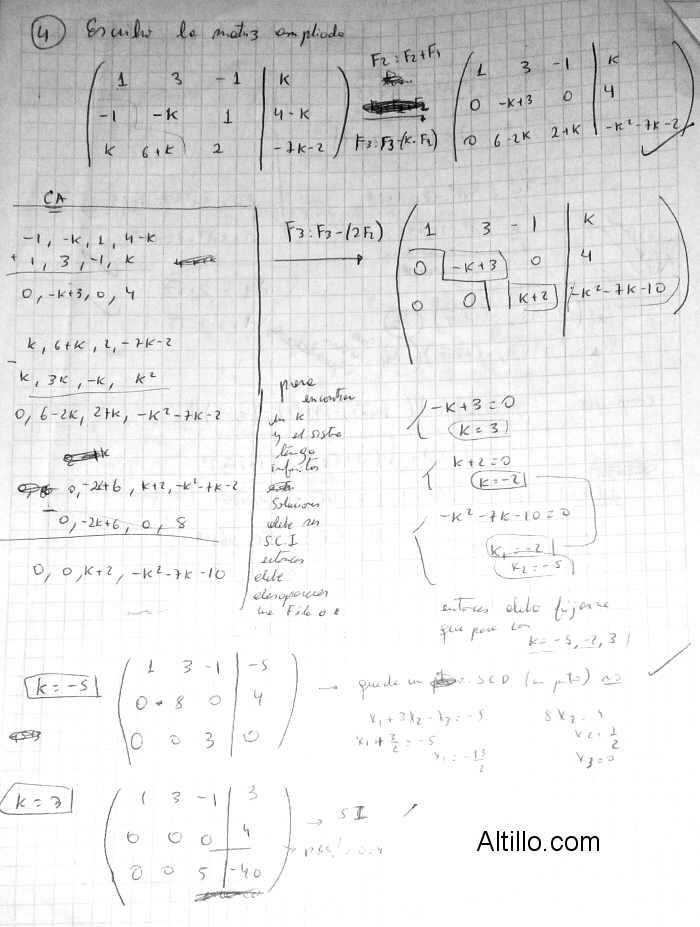 4 Escribo la matriz ampliada
1 3 -1 | k
-1 -k 1 | 4-k
k 6+k 2 | -7k-2
F2: F2+F1
F3: F3-(k.F1)
1 3 -1 | k
0 -k+3 0 | 4
0 6-2k 2+k | -k²-7k-2
CA
-1, -k, 1, 4-k
+ 1, 3, -1, k
0, -k+3, 0, 4
k, 6+k, 2, -7k-2
- k, 3k, -k, k²
0, 6-2k, 2+k, -k²-7k-2
0, -2k+6, k+2, -k²-7k-2
- 0, -2k+6, 0, 8
0, 0, k+2, -k²-7k-10
F3: F3-(2F2)
1 3 -1 | k
0 -k+3 0 | 4
0 0 k+2 | -k²-7k-10
para
encontrar
un k
y el sistema
tenga
infinitas
soluciones
debe ser
S.C.I
entonces
debe
desaparecer
una Fila 0
-k+3=0
k=3
k+2=0
k=-2
-k²-7k-10=0
k1=-2
k2=-5
entonces debo fijarme
que pasa con
k=-5,-2,3
k=-5
1 3 -1 | -5
0 8 0 | 4
0 0 3 | 0
→ queda un SCD (un punto) no
x1+3x2-x3=-5
x1+3/2=-5
x1=-13/2
8x2=4
x2=1/2
x3=0
k=3
1 3 -1 | 3
0 0 0 | 4
0 0 5 | -40
→ SI
Altillo.com